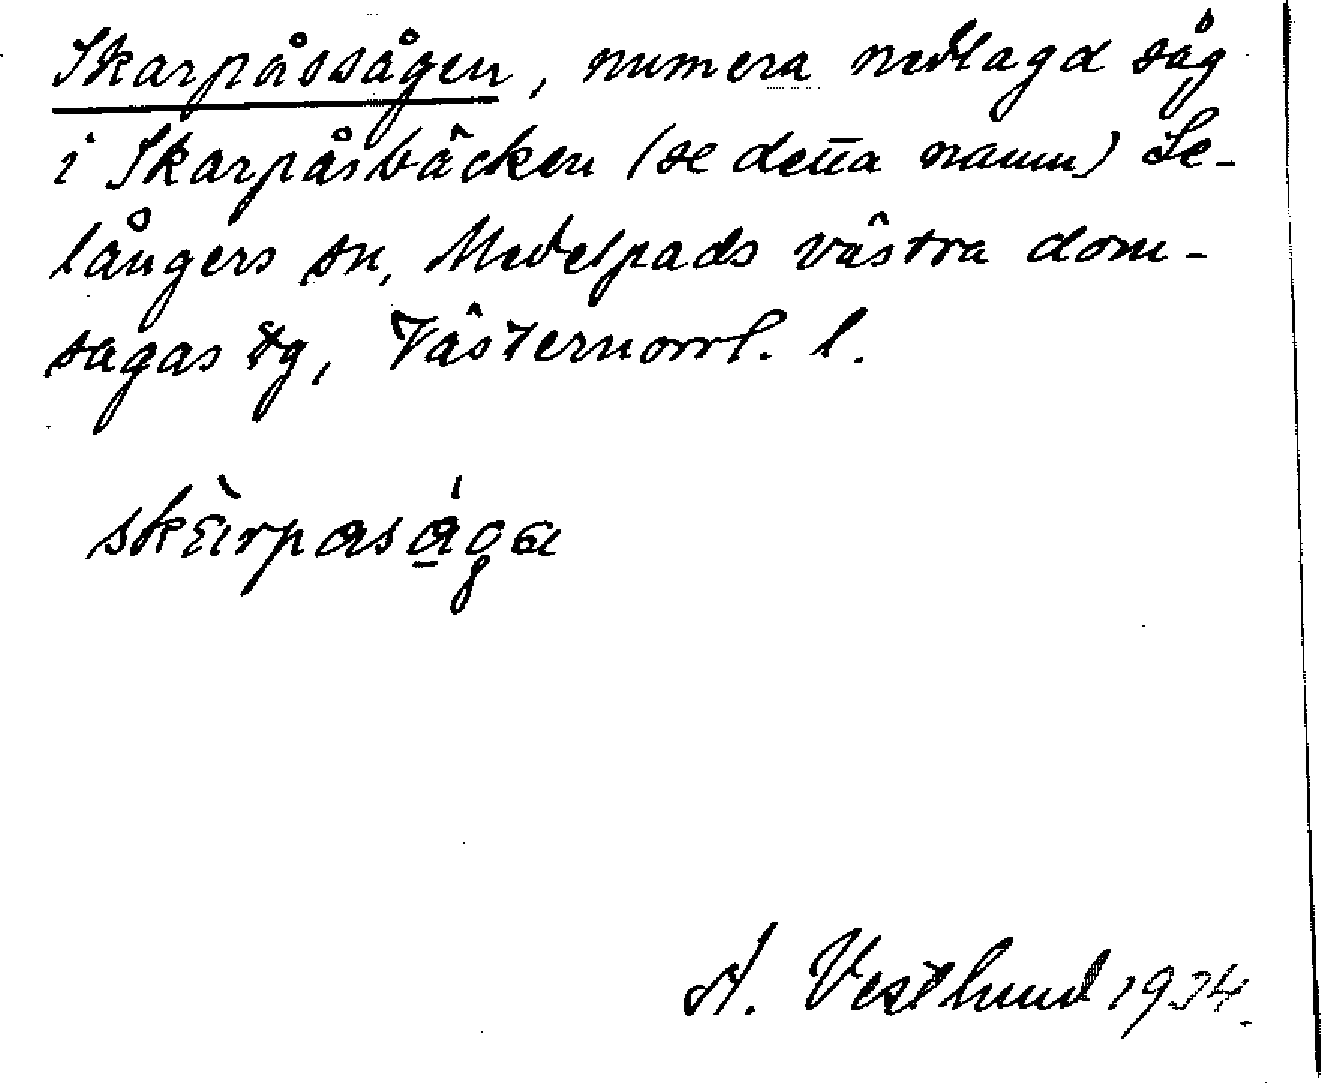 Skarpåssågen, numera nedlagd såg
i Skarpåsbäcken (se detta namn) Se-
långers sn, Medelpads västra dom-
sagas tg, Västernorrl. l.
A. Vestlund 1934.